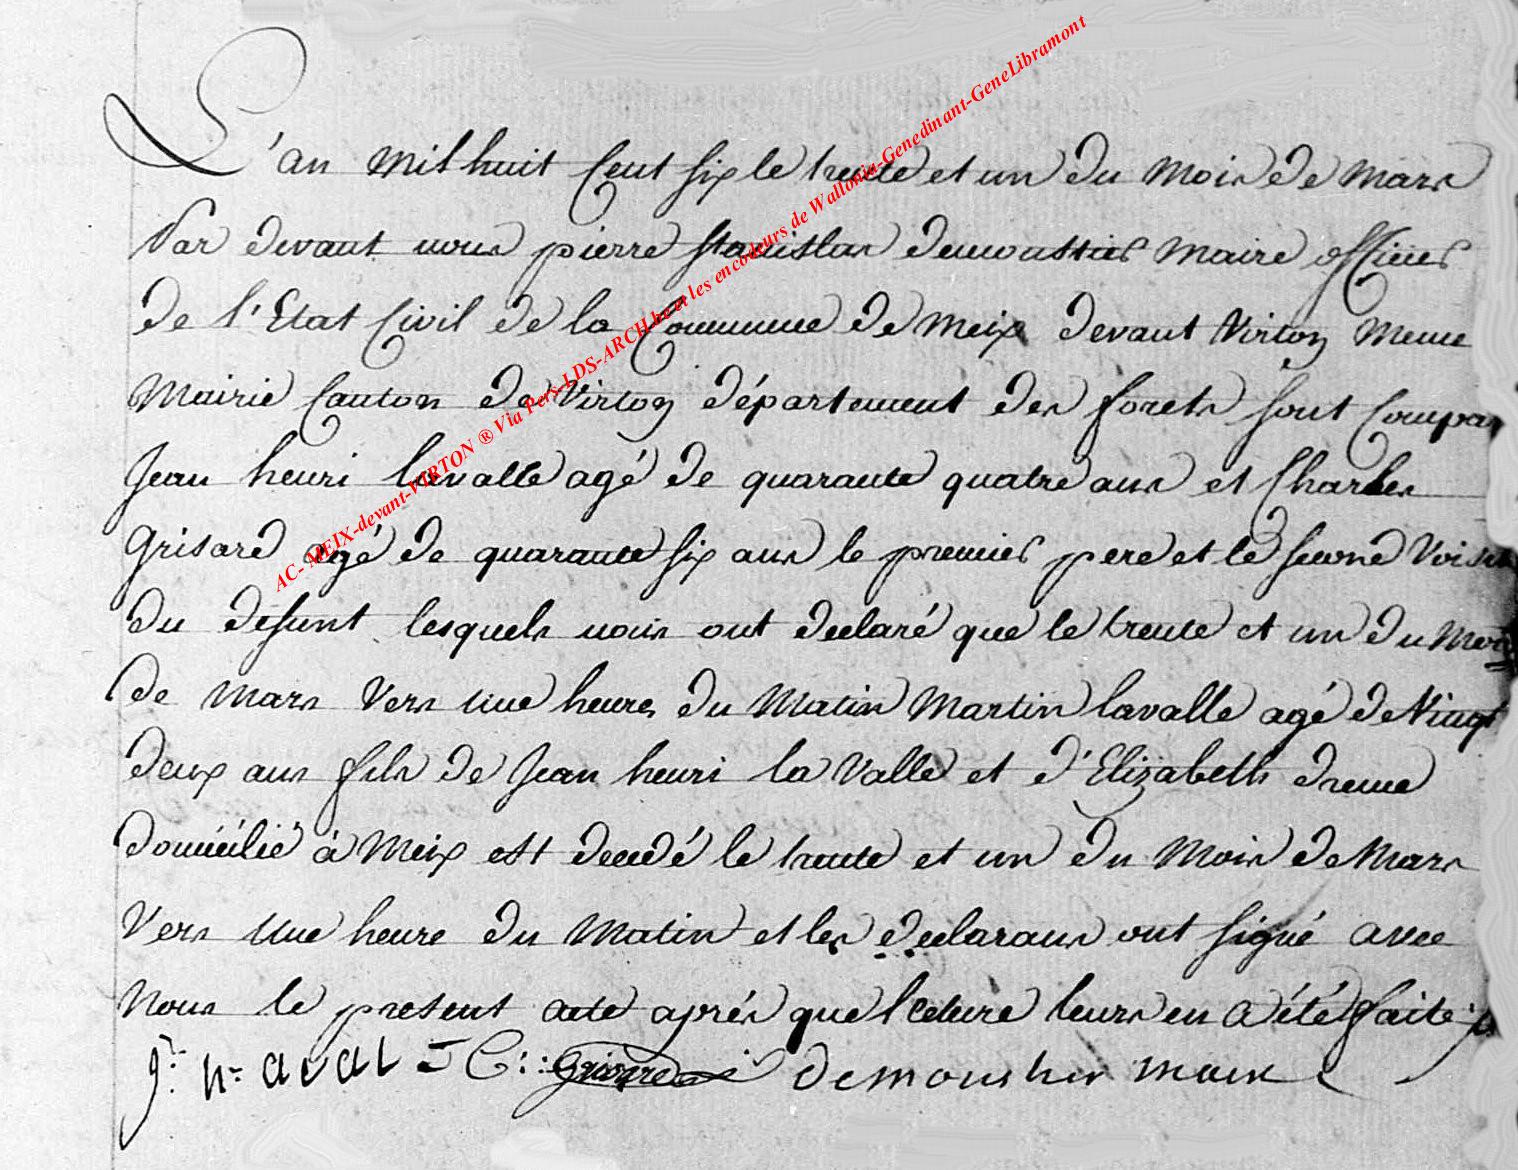 L'an mil huit Cent six le trente et un du mois de mars
Par devant nous pierre stanislas demoustier maire officier
de l'Etat Civil de la Commune de Meix devant Virton meme
Mairie Canton de Virton département des forets sont Compar
Jean henri lavalle agé de quarante quatre ans et Charles
Grisard agé de quarante six ans le premier pere et le second Voisin
du defunt lesquels nous ont declaré que le trente et un du Mois
de mars Vers une heure du Matin Martin lavalle agé de Vingt
deux ans fils de Jean henri la Valle et d'Elizabeth
domicilié à Meix est decedé le trente et un du Mois de Mars
Vers une heure du Matin et les declarans ont signé avec
Nous le present acte aprés que lecture leurs en a été faite
j: h= aval C:: demoustier maire
AC- MEIX-devant-VIRTON ® Via Pers-LDS-ARCH.be et les encodeurs de Wallonia-Genedinant-GeneLibramont